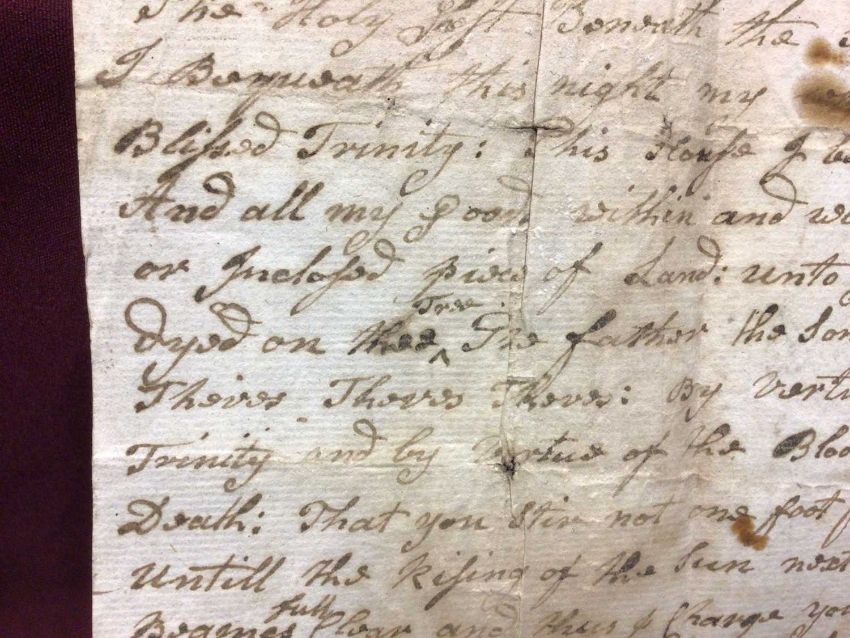 The Holy Gost Beneath the
I Bequeath this night my
Blissed Trinity: This House I
And all my Goods within and
or Inclosed piece of Land: unto
Tree
Dyed on thee ^ The father the Son
Theives Theves Theves: By Vertu
Trinity and by Vertue of the Bloo
Death: That you Stir not one foot
Untill the Rising of the Sun next
full
Beames Clear and thus I Charge you